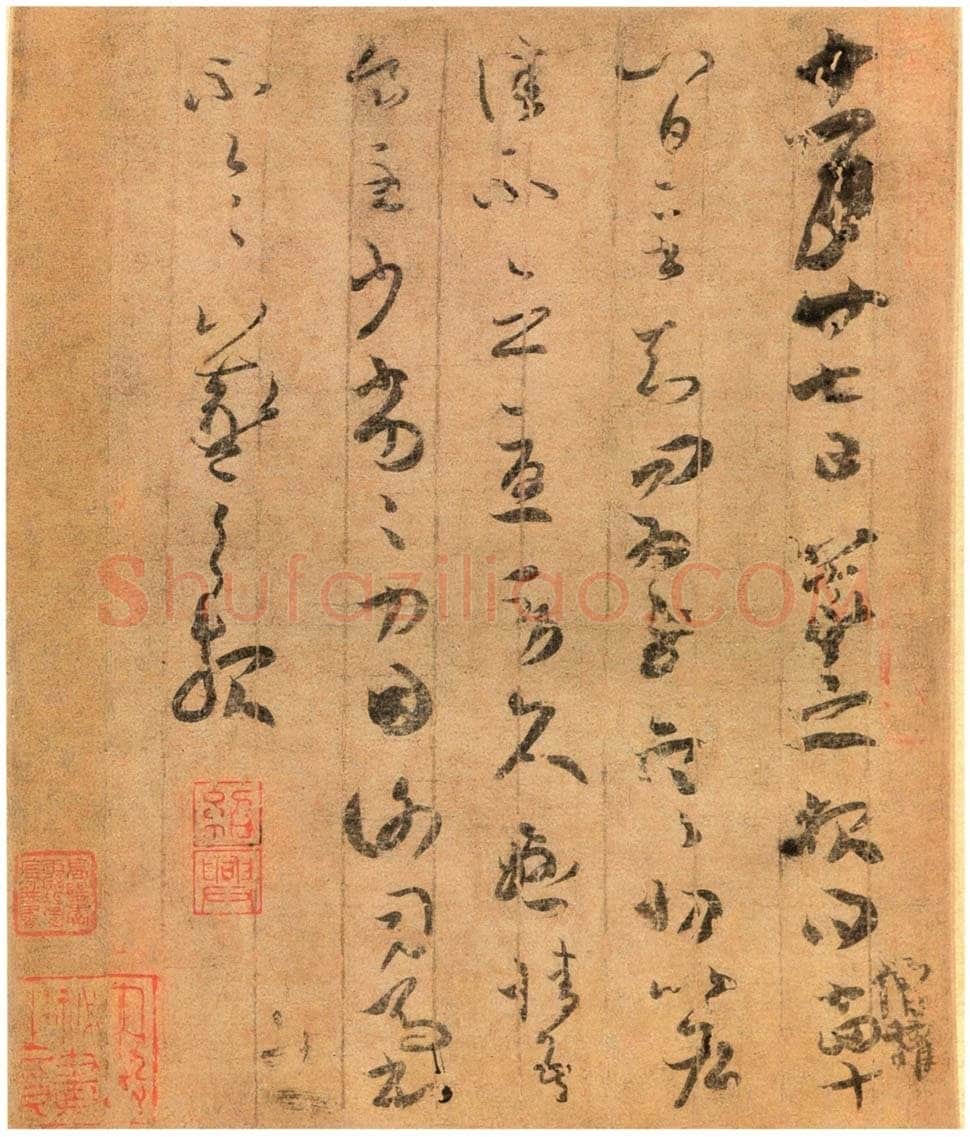 僧權
十一月廿七日羲之報得十四十
八日二書知問為慰寒切比各
佳不念憂勞久懸情吾
食至少劣劣力因謝司馬書
不一一羲之報
紹興
Shufaziliao.COM